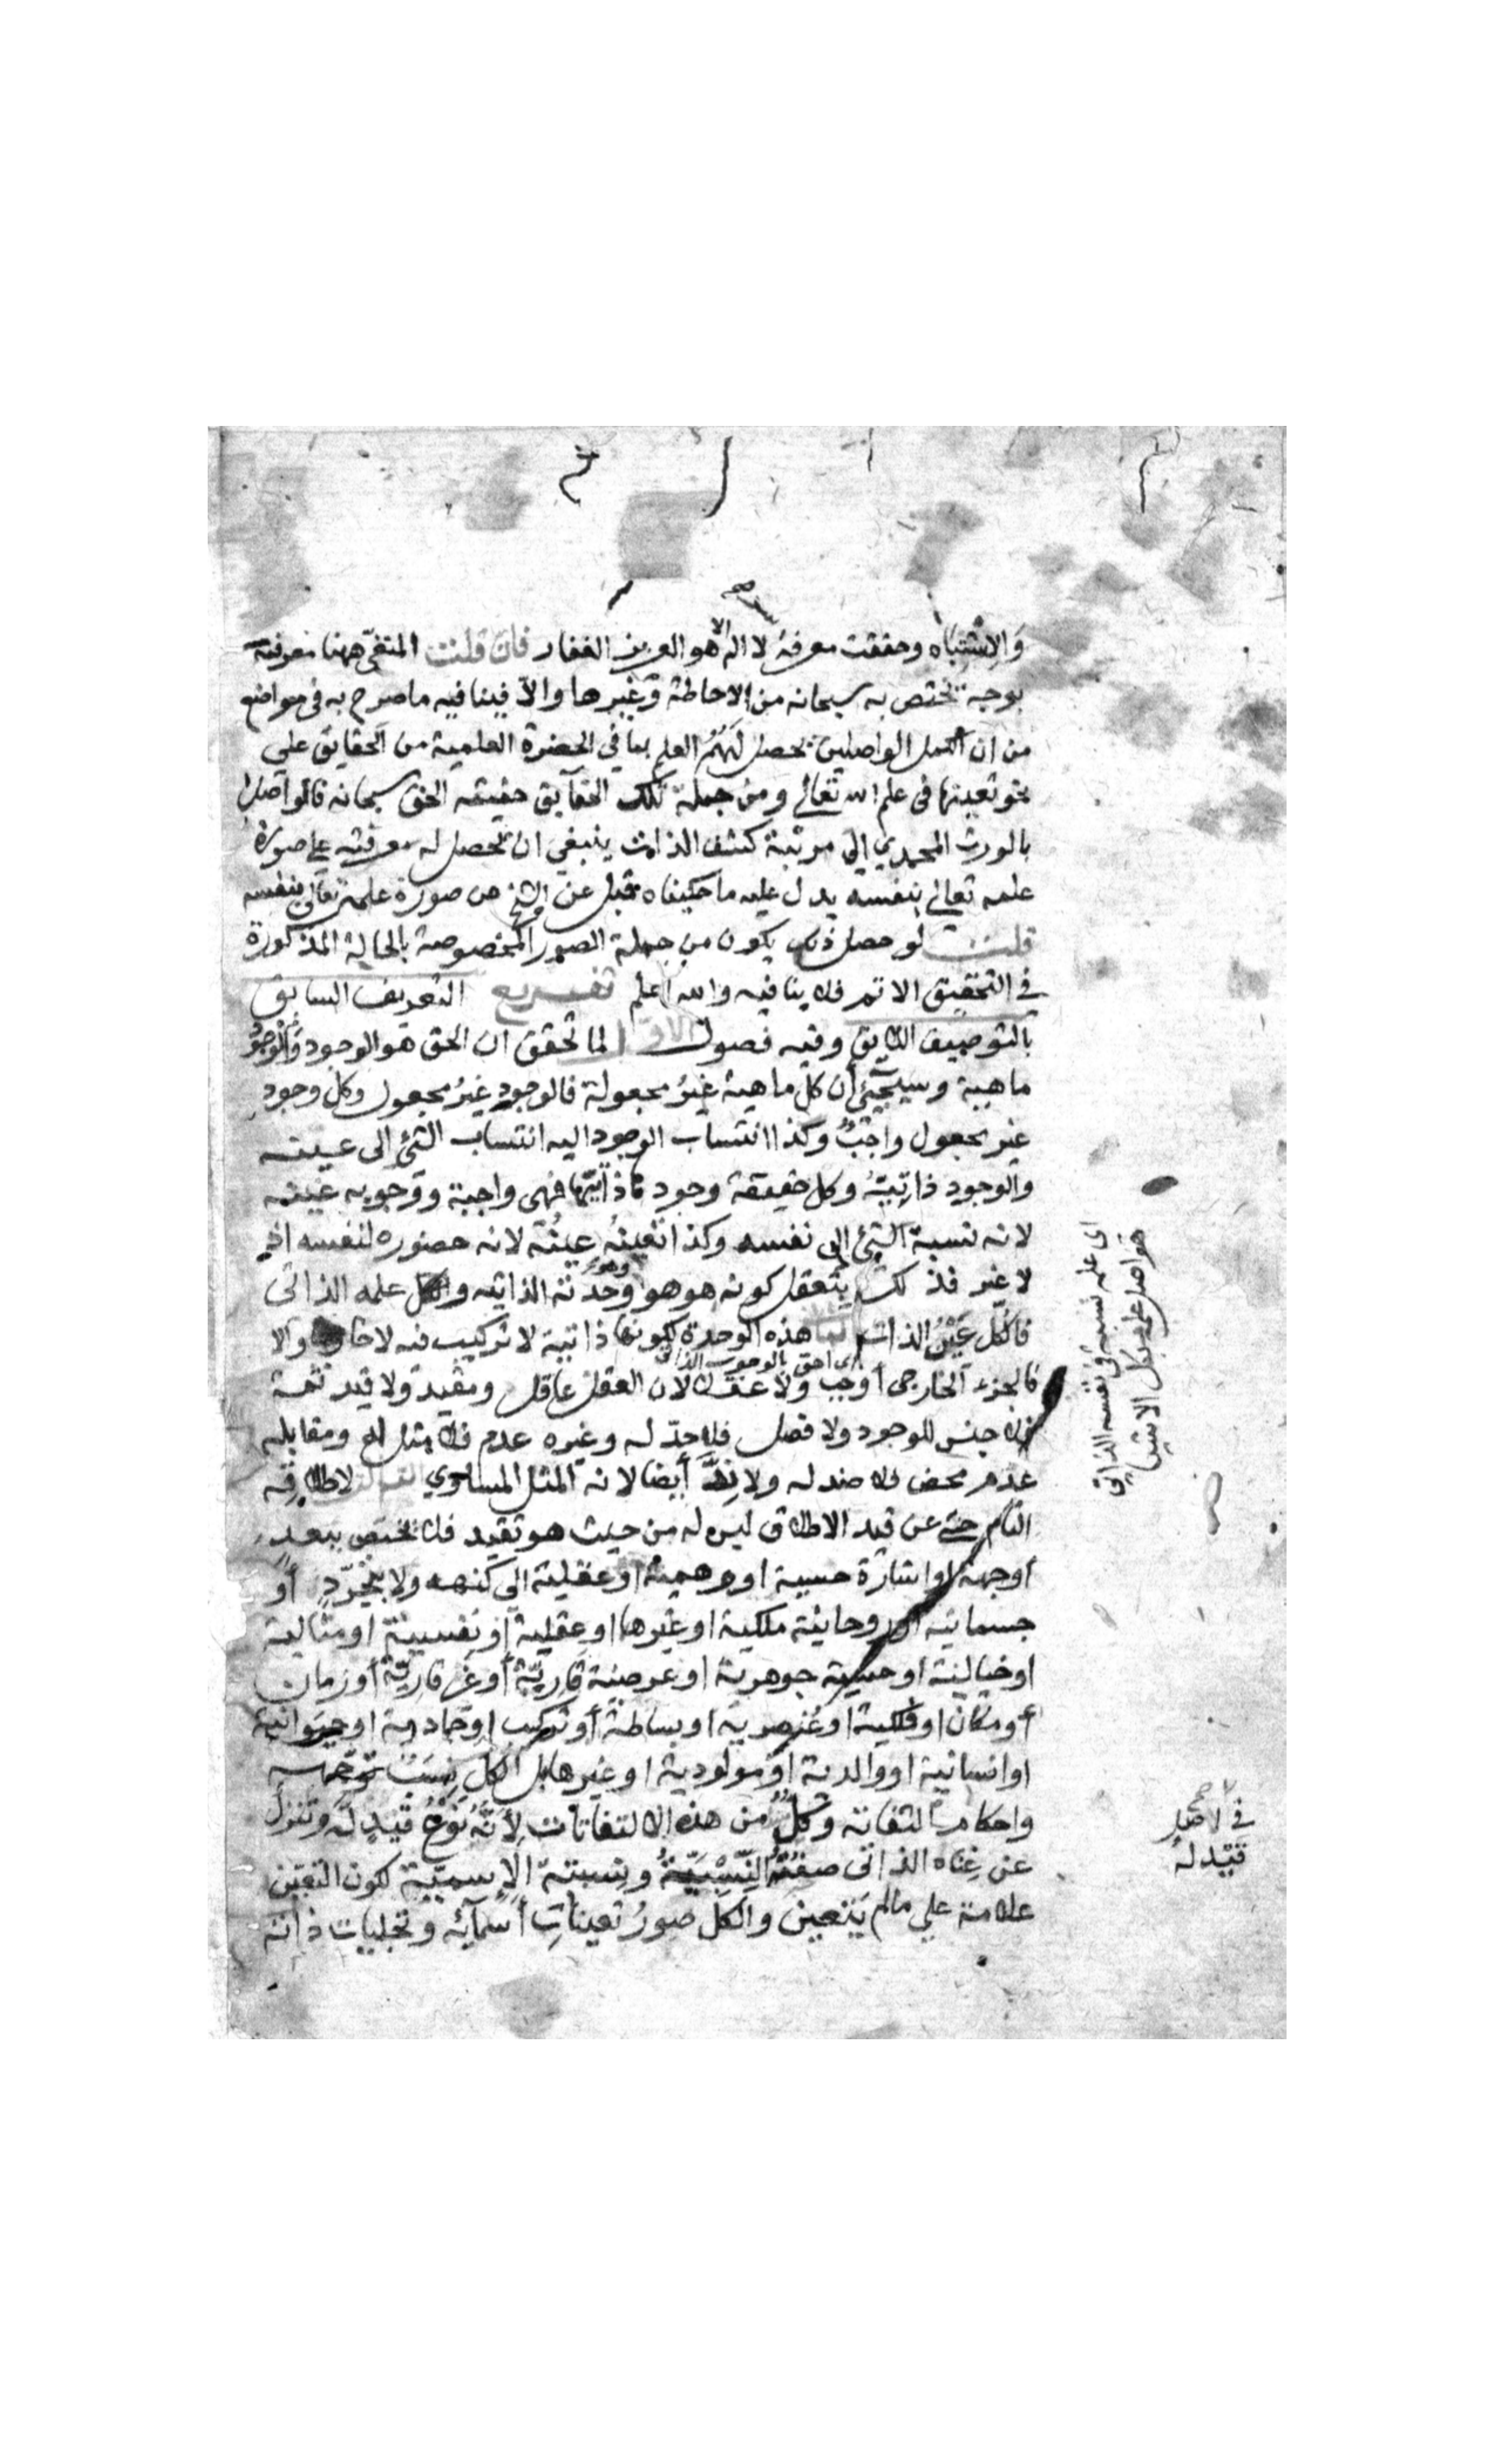 والاشتباه وحققت معرفة لا اله الا هو العزيز الغفار فان قلت المنفى ههنا معرفته
بوجه يختص به سبحانه من الاحاطة وغيرها والا فينافيه ما صرح به فى مواضع
من ان الكمل الواصلين يحصل لهم العلم بما في الحضرة العلمية من الحقايق علي
نحو تعينها فى علم الله تعالي ومن جملة تلك الحقايق حقيقه الحق سبحانه فالواصل
بالورث المحمدي الي مرتبة كشف الذات ينبغي ان يحصل له معرفته علي صورة
علمه تعالي بنفسه يدل عليه ما حكيناه قبل عن الشيخ من صورة علمه تعالي بنفسه
قلت لو حصل ذلك يكون من جملة الصور المخصوصة بالحالة المذكورة
في التحقيق الاتم فلا ينافيه والله اعلم تفسريع التعريف السابق
بالتوصيف اللايق وفيه فصول الاول لما تحقق ان الحق هو الوجود والوجود
ماهية وسيجئ أن كل ماهية غير مجعولة فالوجود غير مجعول وكل وجود
غير مجعول واجب وكذا انتساب الوجود اليه انتساب الشئ الى عينه
والوجود ذاتيته وكل حقيقة وجود فهى واجبة ووجوبه عينه
لانه نسبة الشئ الى نفسه وكذا تعينه عينه لانه حضوره لنفسه اذ
لا غير فذلك يتعقل كونه هو هو وهو وحدته الذاتيه والكل علمه الذاتى
فالكل عين الذات هذه الوحدة لكونها ذاتية لا تركيب فيه لا خارجا والا
فالجزء الخارجى أوجب اى احق بالوجوب الذاتى ولا عقلا لان العقل عاقل ومقيد ولا قيد ثمة
فلا جنس للوجود ولا فصل فلا حد له وغيره عدم فلا مثل له ومقابله
عدم محض فلا ضد له ولا ند أيضا لانه المثل المساوي لاطلاقه
التام حتى عن قيد الاطلاق ليس له من حيث هو تقيد فلا يختص ببعد
أو جهة او اشارة حسية او وهمية او عقلية الى كنهه ولا بتجرد أو
جسمانية او روحانية ملكية او غيرها او عقلية أو نفسية او مثالية
او خيالية او حسية جوهرية او عرضية قارية أو غير قارية أو زمان
أو مكان او فلكية او عنصرية او بساطة أو تركيب او جمادية او حيوانية
او انسانية او والدية او مولودية او غيرها بل الكل نسب توجهه
واحكام التفاته وكل من هذه الالتفاتات لانه نوع قيد له وتنزل
عن غناه الذاتى صفته النسبية ونسبته الاسمية لكون التعين
علامة علي مالم يتعين والكل صور تعينات أسمائه وتجليات ذاته
اى علمه نسبة فى نفسه الذاتي
هو اصل علمه بكل الاشيا
في الاصل
قيد له